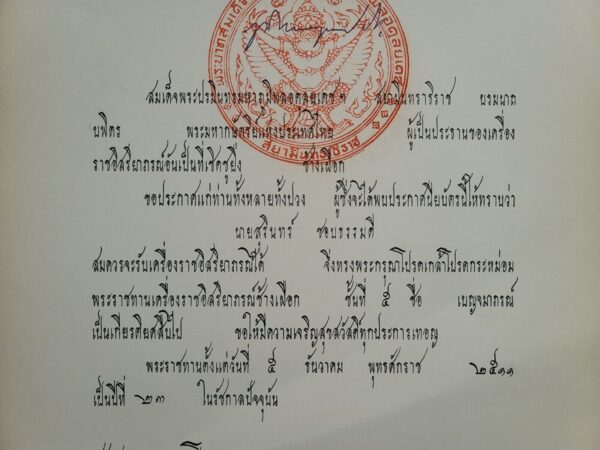 สมเด็จพระปรมินทรมหาภูมิพลอดุลยเดช ฯ สยามินทราธิราช บรมนาถ
บพิตร พระมหากษัตริย์แห่งประเทศไทย ผู้เป็นประธานของเครื่อง
ราชอิสริยาภรณ์อันเป็นที่เชิดชูยิ่ง ช้างเผือก
ขอประกาศแก่ท่านทั้งหลายทั้งปวง ผู้ซึ่งจะได้พบประกาศนียบัตรนี้ให้ทราบว่า
นายสุรินทร์ ชอบธรรมดี
สมควรจะรับเครื่องราชอิสริยาภรณ์ได้ จึ่งทรงพระกรุณาโปรดเกล้าโปรดกระหม่อม
พระราชทานเครื่องราชอิสริยาภรณ์ช้างเผือก ชั้นที่ ๕ ชื่อ เบญจมาภรณ์
เป็นเกียรติยศสืบไป ขอให้มีความเจริญสุขสวัสดิ์ทุกประการเทอญ
พระราชทานตั้งแต่วันที่ ๕ ธันวาคม พุทธศักราช ๒๕๑๑
เป็นปีที่ ๒๓ ในรัชกาลปัจจุบัน